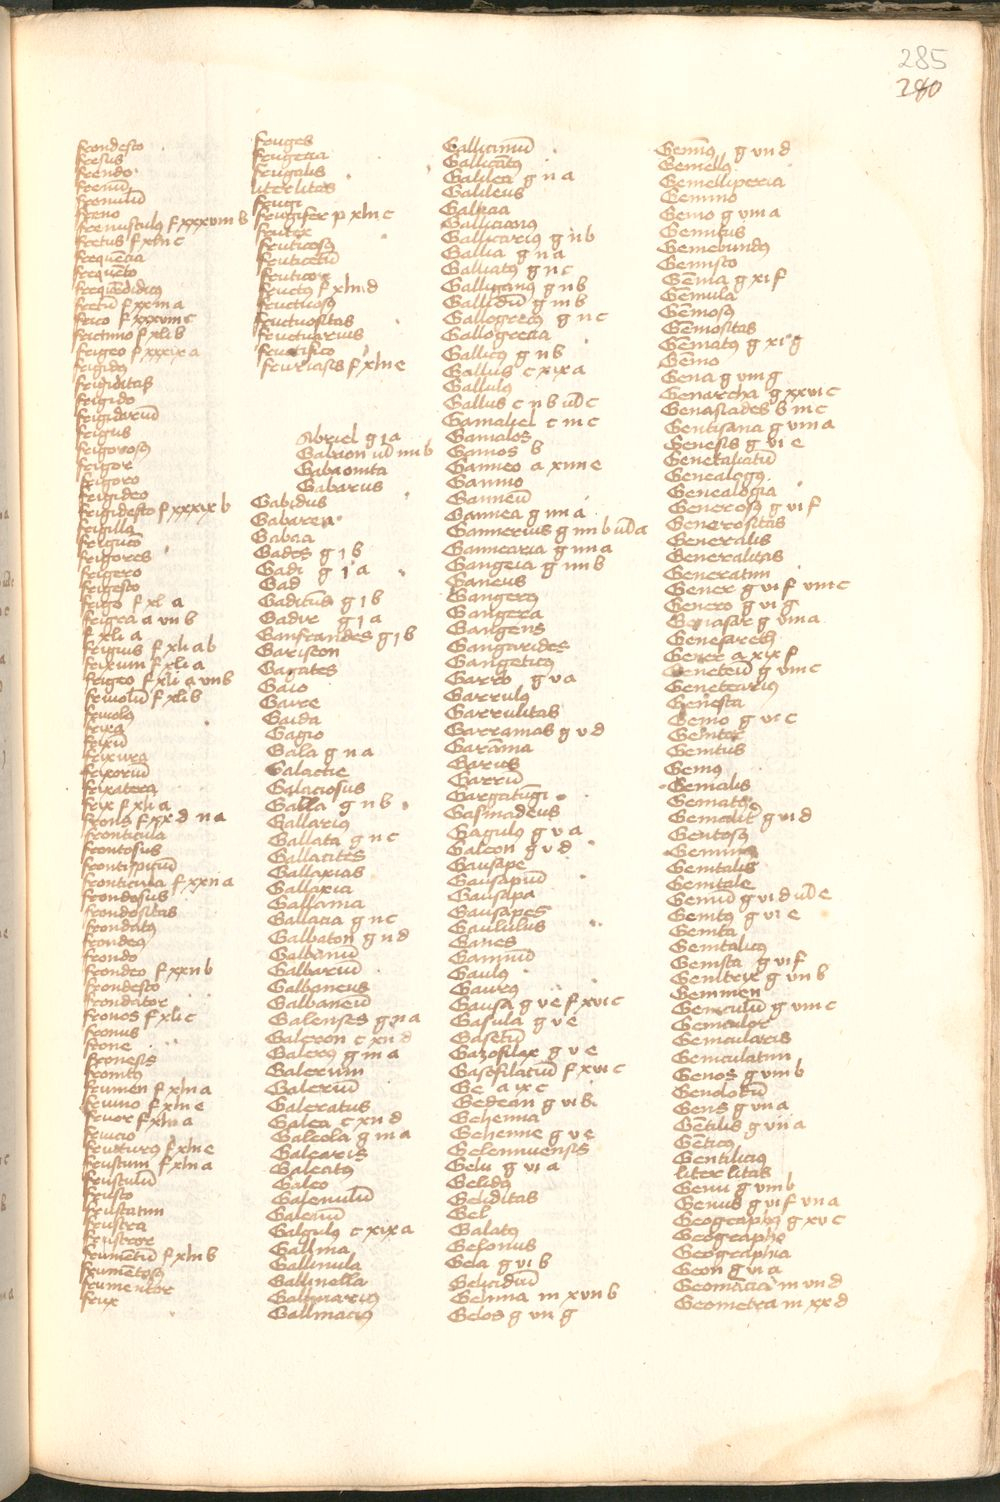 285
280
frondesco
fresus
frendo
frenū
frenulū
freno
frenusculꝯ f xxxviii b
fretus f xlii c
frequēcia
frequēto
frequēdicꝯ
fretū f xxiii a
frico f xxxviii c
frictinio f xli b
frigeo f xxxix a
frigidꝯ
frigiditas
frigido
frigidariū
frigus
frigorosꝯ
frigor
frigoro
frigideo
frigidesco f xxxix b
frigilla
frigores
frigero
frigesco
frigo f xl a
frigia a vii b
f xli a
frigius f xli a b
frixum f xli a
frigeo f xli a vii b
friuolū f xli b
friuolꝯ
frixa
frixū
frixura
frixoriū
frixatera
frix f xli a
frons f xx d ii a
fronticula
frontosus
frontispiciū
fronticula f xxii a
frondosus
frondositas
frondatꝯ
frondeꝯ
frondo
frondeo f xxii b
frondesco
frondator
fronos f xli c
fronus
frone
fronesis
fronitꝯ
frumen f xlii a
fruino f xlii e
fruor f xlii a
fruicio
fruiturꝯ f xlii e
frustum f xlii a
frustulū
frusto
frustatim
frustra
frustror
frumētū f xlii b
frumētosꝯ
frumentor
frux
fruges
frugeria
frugalis
literlitas
frugi
frugifer p xlii c
frutex
fruticosꝯ
fruticetū
fruticor
fructꝯ f xlii d
fructuosꝯ
fructuositas
fructuarius
fructifico
friuriasis f xlii e
Abriel g i a
Gabaon ud iiii b
Gabaonita
Gabarus
Gabidus
Gabarea
Gabaa
Gades g i b
Gadi g i a
Gad
Gaditāꝯ g i b
Gadir g i a
Ganfrandes g i b
Garison
Gagates
Gaio
Gaire
Gaida
Gagio
Gala g ii a
Galactie
Galaciosus
Galla g ii b
Gallariꝯ
Gallata g ii c
Gallacites
Gallaxias
Gallaxia
Gallama
Gallacia g ii c
Galbaton g ii d
Galbanū
Galbariū
Galbaneus
Galbaneū
Galenses g ii a
Galeron c xii d
Galerꝯ g iii a
Galerum
Galeriū
Galeratus
Galea c xii d
Galeola g iii a
Galearis
Galeatꝯ
Galeo
Galenulū
Galenū
Galgulꝯ c xix a
Gallina
Gallinula
Gallinella
Gallinariꝯ
Gallinaciꝯ
Gallicinū
Gallicātꝯ
Galilea g ii a
Galileus
Galicia
Galliciariꝯ g ii b
Gallia g ii a
Galliatꝯ g ii c
Galliganꝯ g ii b
Gallidū g iii b
Gallogrecꝯ g ii c
Gallogrecia
Gallicꝯ g ii b
Gallus c xix a
Gallulꝯ
Gallus c ii b ud c
Gamaliel c iii c
Gamalos
Gamos b
Ganneo a xiiii e
Gannio
Ganneū
Gannea g iiii a
Gannerius g iiii b ud a
Gannearia g iiii a
Gangeia g iiii b
Ganeus
Gangerꝯ
Gangera
Gangens
Gangarides
Gangeticꝯ
Garro g v a
Garrulꝯ
Garrulitas
Garramas g v d
Garāma
Garus
Garrū
Gargatūgi
Gasmadeus
Gagulꝯ g v a
Galeon g v d
Gausape
Gausapiū
Gausapa
Gausapes
Gaululus
Ganes
Gamniū
Gaulꝯ
Gaurꝯ
Gausa g v e f xvi c
Gasula g v e
Gasetū
Gazofilax g v e
Gasofilaciū f xvi c
Ge a ix c
Gedeon g vi b
Gehenna
Gehenne g v e
Gelennuensis
Gelu g vi a
Gelidꝯ
Geliditas
Gel
Gelatꝯ
Gelonus
Gela g vi b
Gelicidiū
Gelima m xvii b
Gelos g vii g
Gemīꝯ g vii d
Gemellꝯ
Gemelliperia
Gemino
Gemo g viii a
Gemitus
Gemebundꝯ
Gemisco
Gēma g xi f
Gēmula
Gēmosꝯ
Gēmositas
Gēmatꝯ g xi g
Gēmo
Gena g viii g
Genarcha g xxvi c
Genasiades b iii c
Gentisana g viii a
Genesis g vi e
Genetaliatū
Genealogꝯ
Genealogia
Generosꝯ g vi f
Generositas
Generalis
Generalitas
Generatim
Gener g vi f viii c
Genero g vi g
Genasar g viii a
Genesareth
Gener a xix f
Geneceū g viii c
Genecearius
Genesta
Geno g vi c
Genitor
Genitus
Geniꝯ
Genialis
Geniatꝯ
g vi d
Gentosꝯ
Genitalis
Genitale
Geniū g vi d ud e
Genitꝯ g vi e
Genita
Genitalicꝯ
Genista g vi f
Genitrix g viii b
Gemmen
Geniculū g viii c
Geniculor
Genicularis
Geniculatim
Genos g viii b
Genolotū
Gens g vii a
Gētilis g vii a
Gēticꝯ
Gentiliciꝯ
literlitas
Genu g viii b
Genus g vi f vii a
Geographꝯ g xv c
Geographo
Geographia
Geon g vi a
Geomācia m vii d
Geometra m xx d